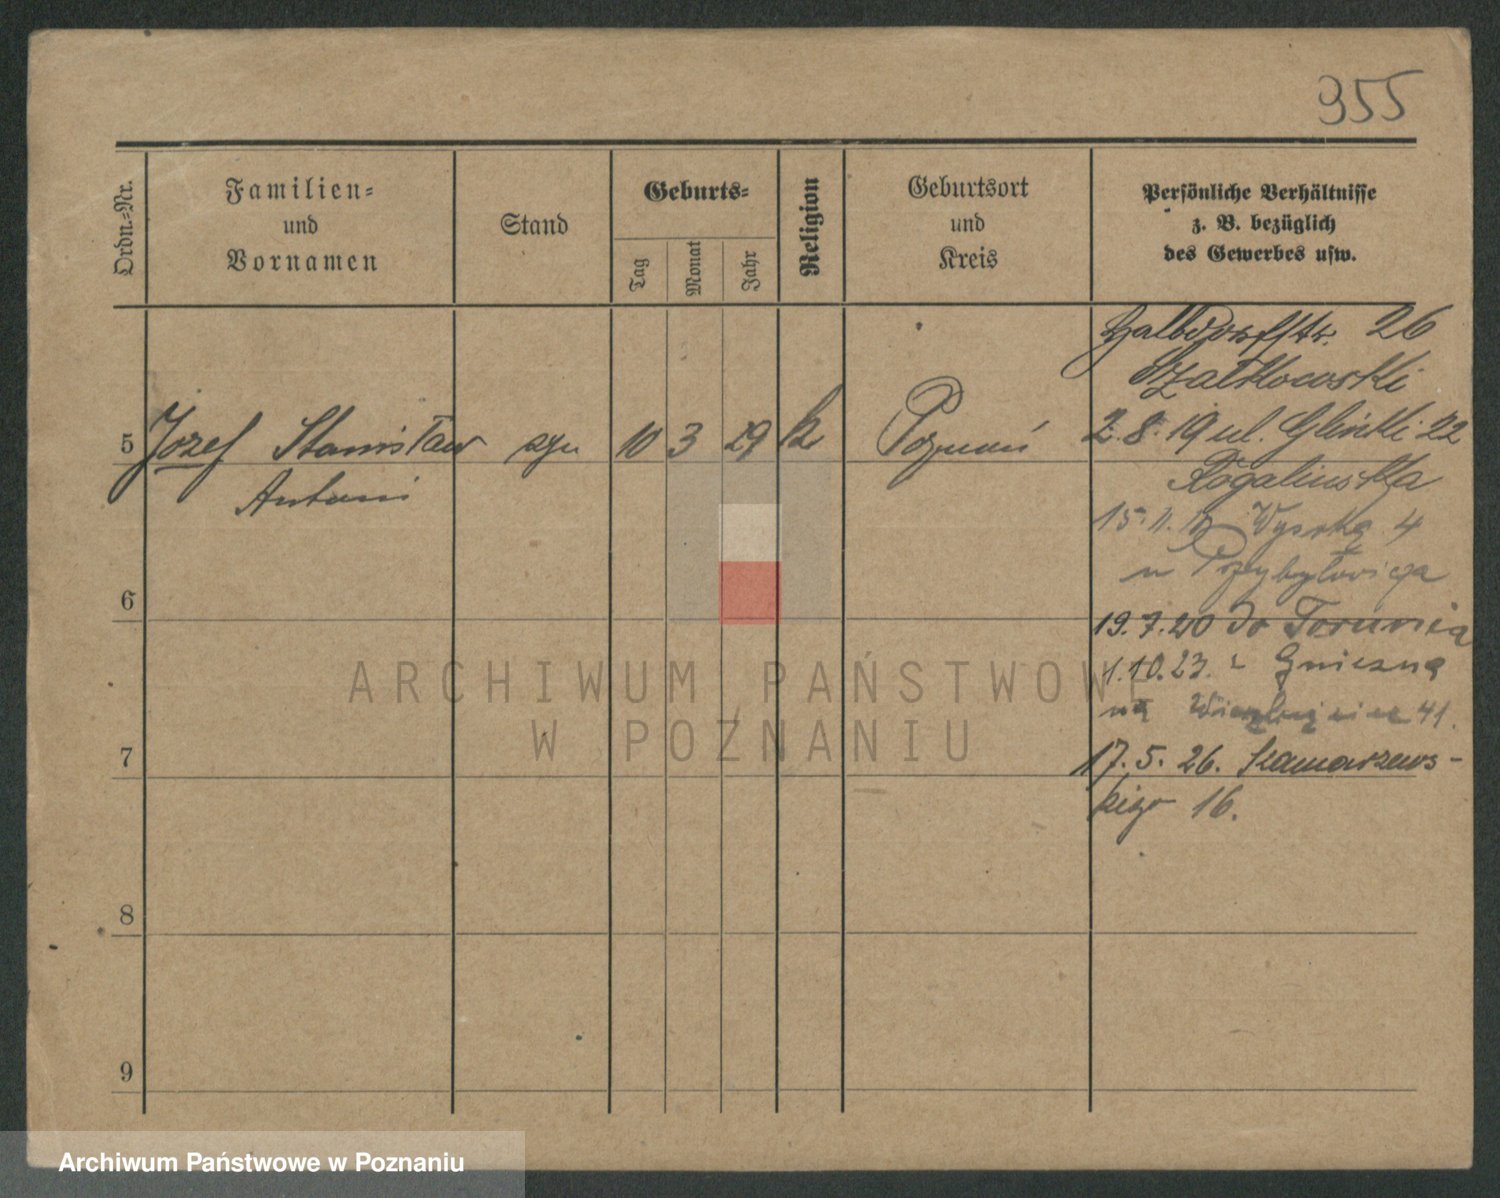 955
Ordn.-Nr.
Familien-
und
Vornamen
Stand
Geburts-
Tag
Monat
Jahr
Religion
Geburtsort
und
Kreis
Persönliche Verhältnisse
z. B. bezüglich
des Gewerbes usw.
26
Szatkowski
5 Józef Stanisław syn 10 3 29 k Poznań 2.8.19 ul. Glinki 22
Antoni
Rogalinska
15.11. Wysoka 4
u Przybyłowicza
6
19.7.20 do Torunia
1.10.23. z Gniezna
na 41.
7
17.5.26. Szamarzews-
kiego 16.
8
9
ARCHIWUM PAŃSTWOWE
W POZNANIU
Archiwum Państwowe w Poznaniu